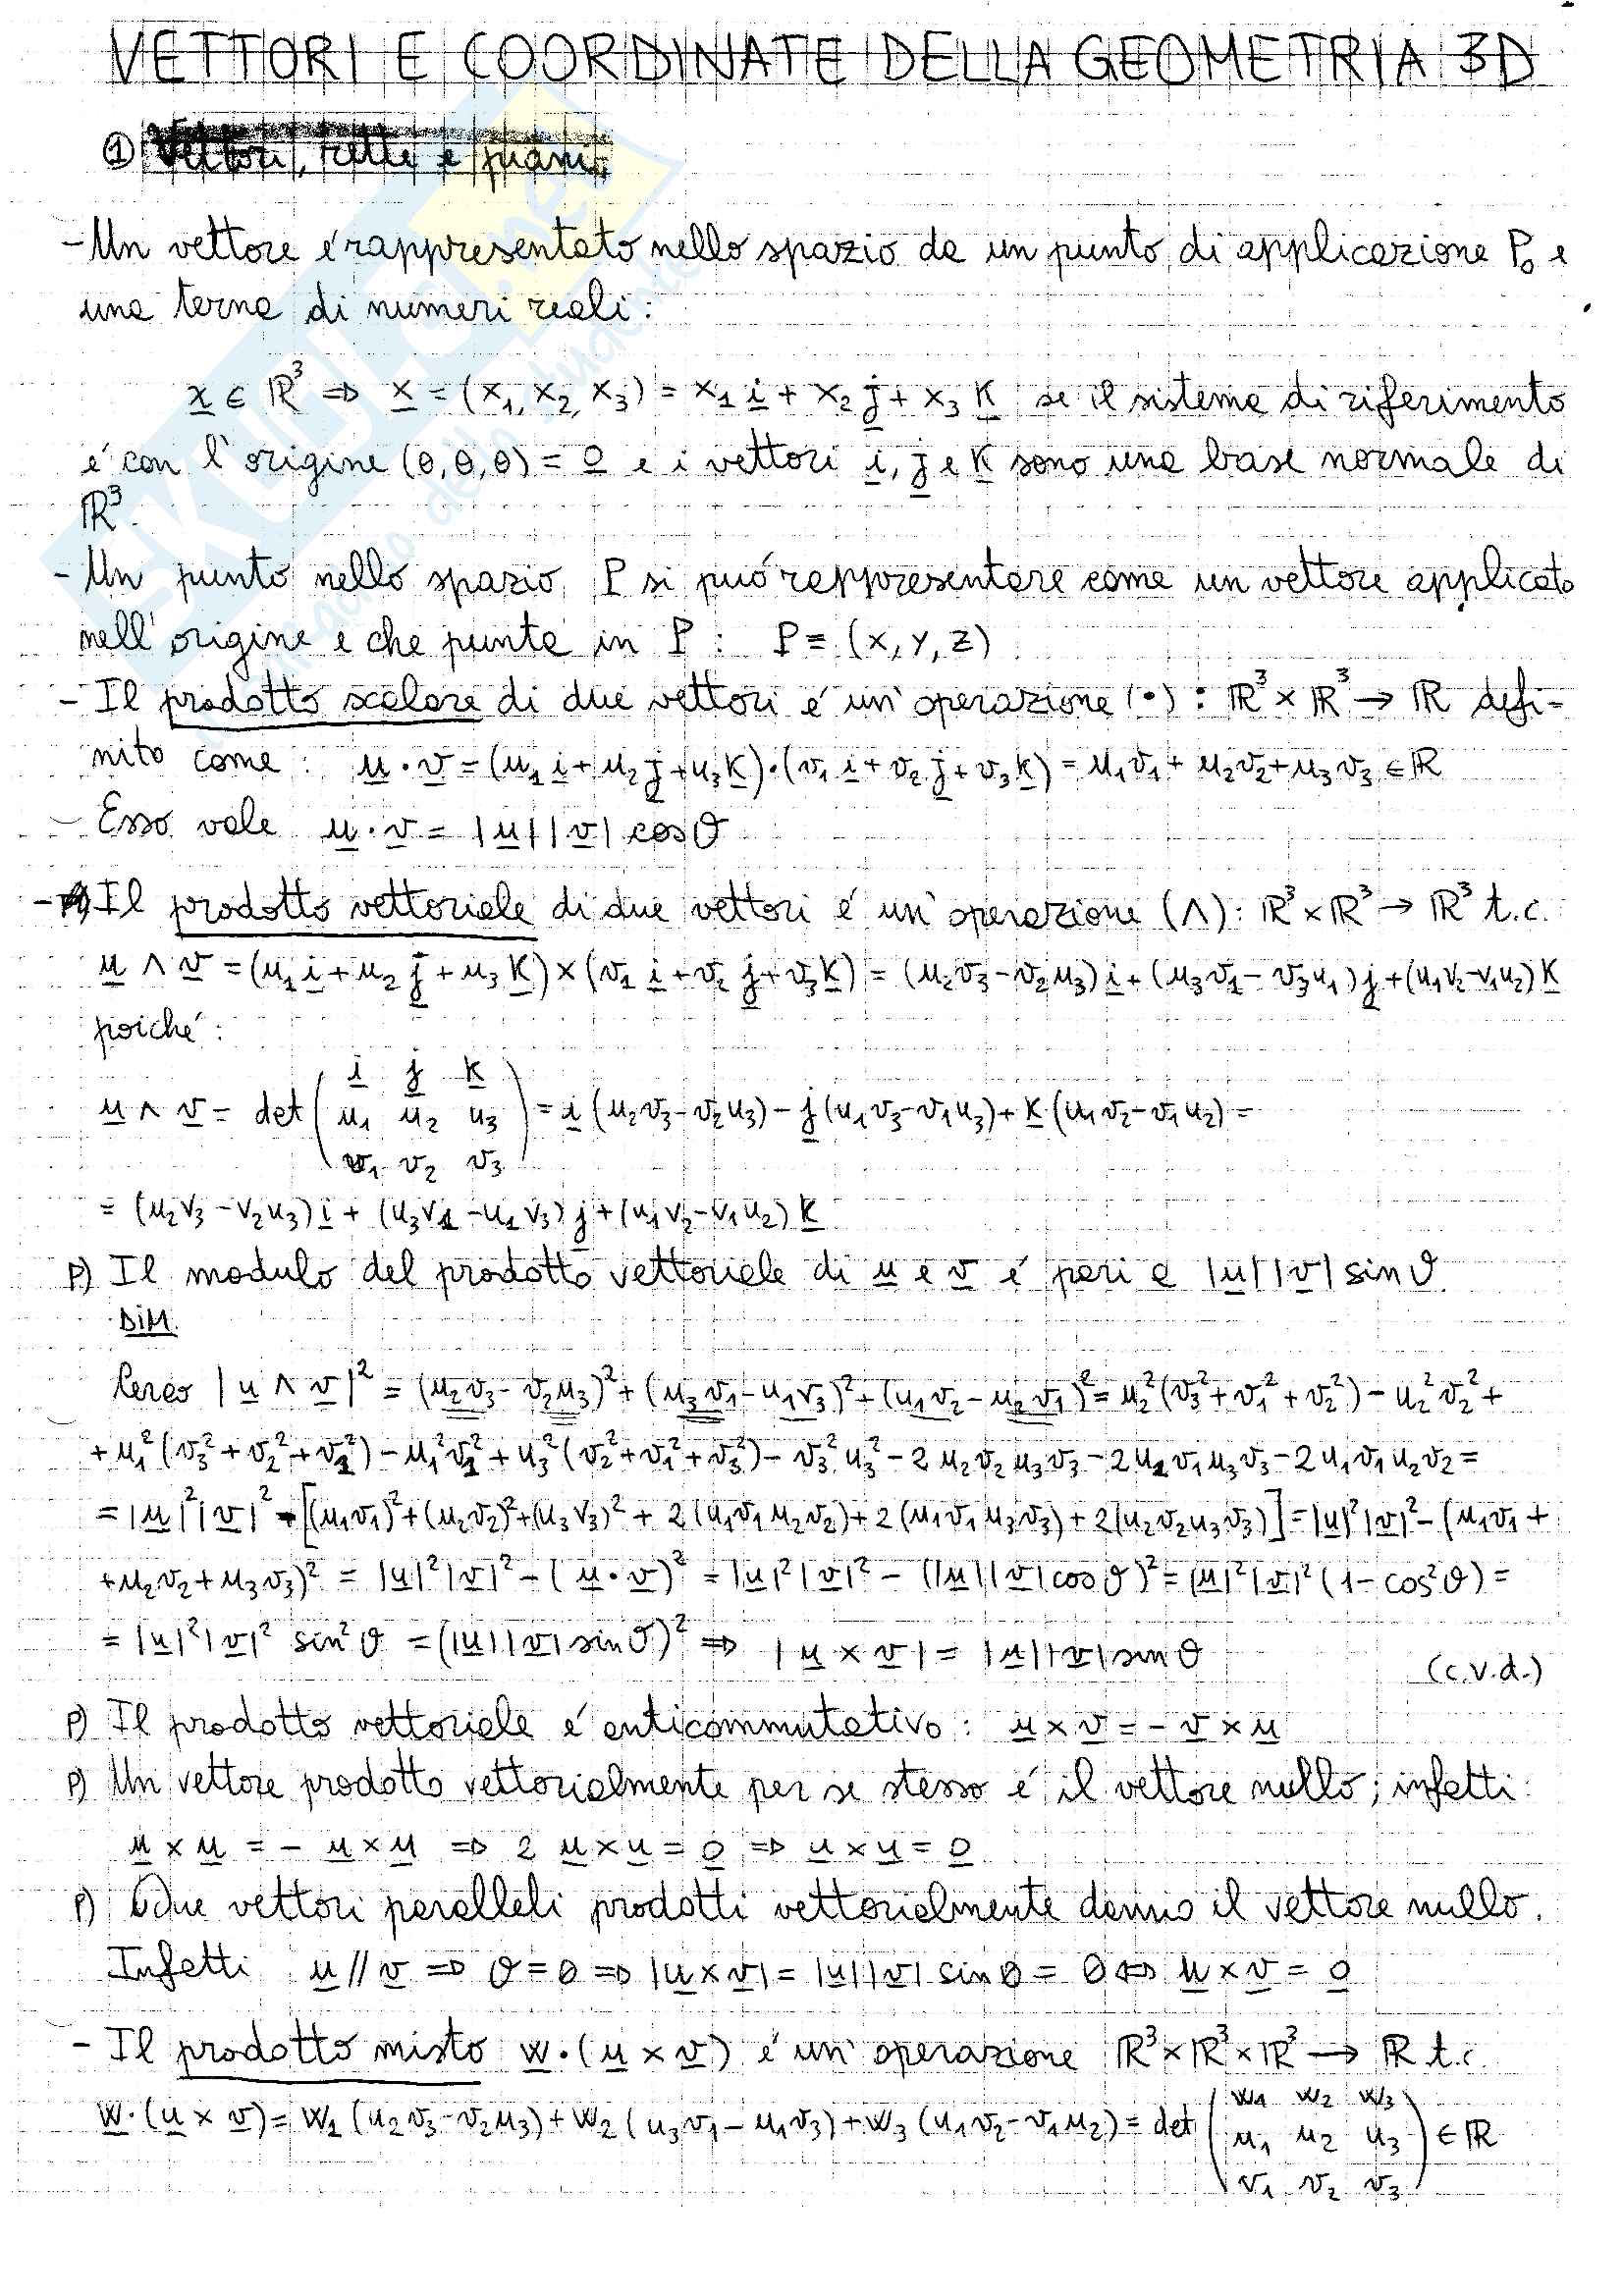 VETTORI E COORDINATE DELLA GEOMETRIA 3D
① Vettori, rette e piani.
- Un vettore é rappresentato nello spazio da un punto di applicazione P₀ e
una terna di numeri reali:
x ∈ ℝ³ ⇒ x = (x₁, x₂, x₃) = x₁ i + x₂ j + x₃ k se il sistema di riferimento
é con l'origine (0,0,0) = 0 e i vettori i, j e k sono una base normale di
ℝ³.
- Un punto nello spazio P si puó rappresentare come un vettore applicato
nell'origine e che punta in P: P ≡ (x, y, z)
- Il prodotto scalare di due vettori é un'operazione (•): ℝ³ × ℝ³ → ℝ defi-
nito come: u · v = (u₁ i + u₂ j + u₃ k)·(v₁ i + v₂ j + v₃ k) = u₁v₁ + u₂v₂ + u₃v₃ ∈ ℝ
Esso vale u · v = |u| |v| cos θ
- Il prodotto vettoriale di due vettori é un'operazione (∧): ℝ³ × ℝ³ → ℝ³ t.c.
u ∧ v = (u₁ i + u₂ j + u₃ k) × (v₁ i + v₂ j + v₃ k) = (u₂v₃ - v₂u₃) i + (u₃v₁ - v₃u₁) j + (u₁v₂ - v₁u₂) k
poiché:
i j k
u ∧ v = det ( u₁ u₂ u₃ ) = i (u₂v₃ - v₂u₃) - j (u₁v₃ - v₁u₃) + k (u₁v₂ - v₁u₂) =
v₁ v₂ v₃
= (u₂v₃ - v₂u₃) i + (u₃v₁ - u₁v₃) j + (u₁v₂ - v₁u₂) k
P) Il modulo del prodotto vettoriale di u e v é pari a |u| |v| sin θ
DIM.
Cerco |u ∧ v|² = (u₂v₃ - v₂u₃)² + (u₃v₁ - u₁v₃)² + (u₁v₂ - u₂v₁)² = u₂²(v₃² + v₁² + v₂²) - u₂²v₂² +
+ u₁²(v₃² + v₂² + v₁²) - u₁²v₁² + u₃²(v₂² + v₁² + v₃²) - v₃²u₃² - 2u₂v₂u₃v₃ - 2u₁v₁u₃v₃ - 2u₁v₁u₂v₂ =
= |u|²|v|² - [(u₁v₁)² + (u₂v₂)² + (u₃v₃)² + 2(u₁v₁u₂v₂) + 2(u₁v₁u₃v₃) + 2(u₂v₂u₃v₃)] = |u|²|v|² - (u₁v₁ +
+ u₂v₂ + u₃v₃)² = |u|²|v|² - (u • v)² = |u|²|v|² - (|u||v|cos θ)² = |u|²|v|² (1 - cos²θ) =
= |u|²|v|² sin²θ = (|u||v| sin θ)² ⇒ |u × v| = |u||v| sin θ
(c.v.d.)
P) Il prodotto vettoriale é anticommutativo: u × v = - v × u
P) Un vettore prodotto vettorialmente per se stesso é il vettore nullo; infatti:
u × u = - u × u ⇒ 2 u × u = 0 ⇒ u × u = 0
P) Due vettori paralleli prodotti vettorialmente danno il vettore nullo.
Infatti u // v ⇒ θ = 0 ⇒ |u × v| = |u||v| sin 0 = 0 ⇔ u × v = 0
- Il prodotto misto w • (u × v) é un'operazione ℝ³ × ℝ³ × ℝ³ → ℝ t.c.
w₁ w₂ w₃
w · (u × v) = w₁ (u₂v₃ - v₂u₃) + w₂ (u₃v₁ - u₁v₃) + w₃ (u₁v₂ - v₁u₂) = det ( u₁ u₂ u₃ ) ∈ ℝ
v₁ v₂ v₃